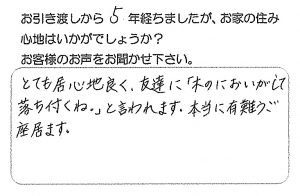 お引き渡しから5年経ちましたが、お家の住み
心地はいかがでしょうか？
お客様のお声をお聞かせ下さい。
とても居心地良く、友達に「木のにおいがして
落ち付くね。」と言われます。本当に有難うご
座居ます。